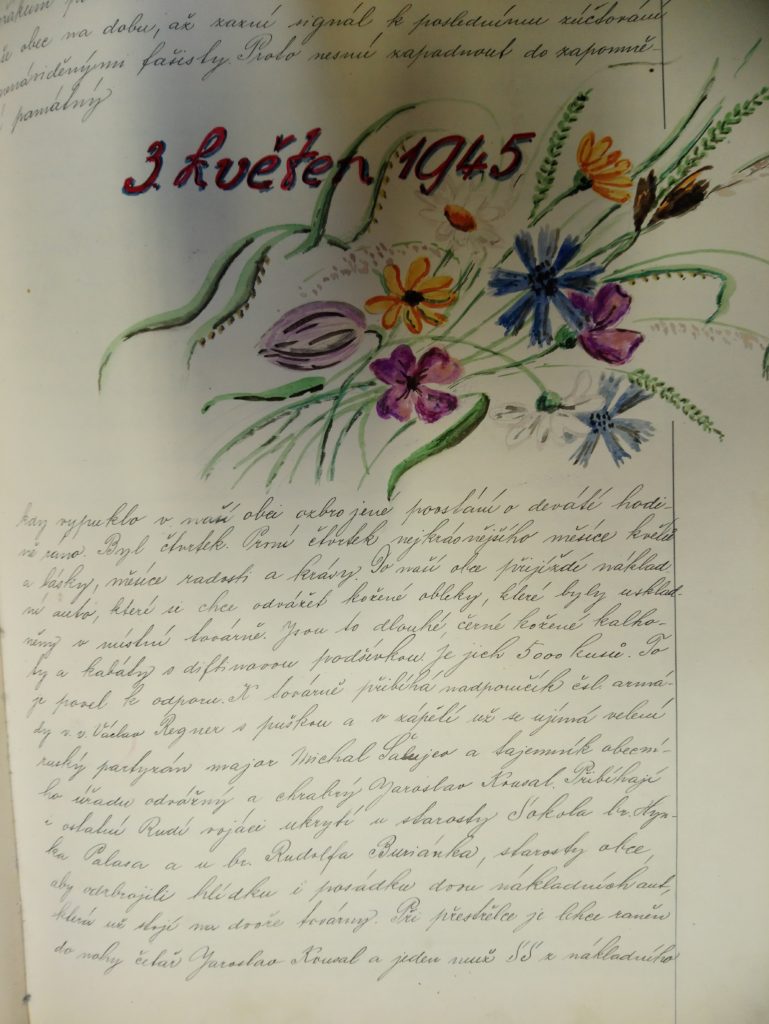 obec na dobu, až zazní signál k poslednímu zúčtování
nenáviděnými fašisty. Proto nesmí zapadnout do zapomně-
památný
3. květen 1945,
kdy vypuklo v naší obci ozbrojené povstání o deváté hodi-
ně ráno. Byl čtvrtek. První čtvrtek nejkrásnějšího měsíce květů
a lásky, měsíce radosti a krásy. Do naší obce přijíždí náklad-
ní auto, které si chce odvážet kožené obleky, které byly usklad-
něny v místní továrně. Jsou to dlouhé, černé kožené kalho-
ty a kabáty s diftinovou podšívkou. Je jich 5000 kusů. To
je povel k odporu. K továrně přibíhá nadporučík čsl. armá-
dy v. v. Václav Regner s puškou a v zápětí už se ujímá velení
ruský partyzán major Michal a tajemník obecní-
ho úřadu odvážný a chrabrý Jaroslav Kousal. Přibíhají
i ostatní Rudí vojáci ukrytí u starosty Sokola br. Hyn-
ka Palasa a u br. Rudolfa Buriánka, starosty obce,
aby odzbrojili hlídku i posádku dvou nákladních aut,
která už stojí na dvoře továrny. Při přestřelce je lehce raněn
do nohy četař Jaroslav Kousal a jeden muž SS z nákladního